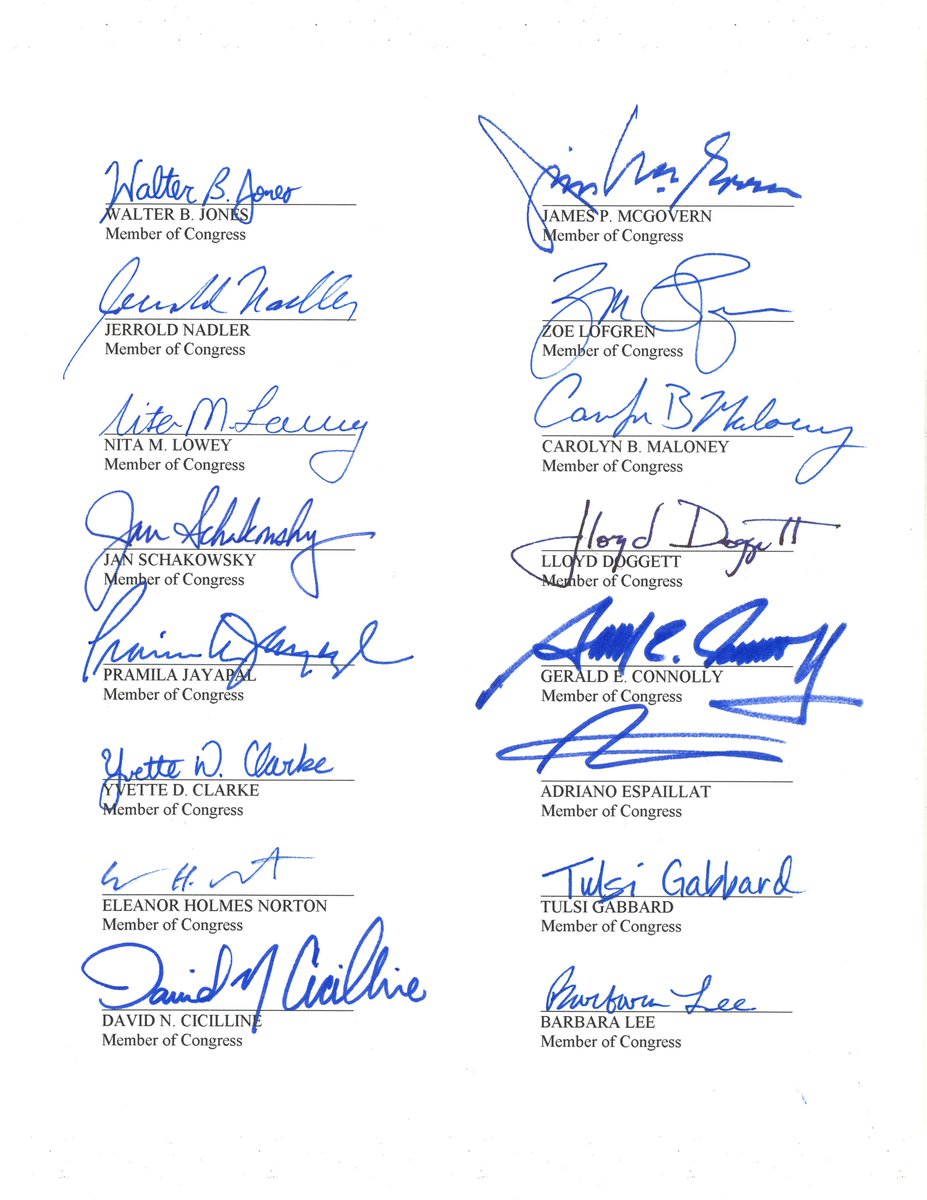 Walter B. Jones
WALTER B. JONES
Member of Congress
Jim McGovern
JAMES P. MCGOVERN
Member of Congress
Jerrold Nadler
JERROLD NADLER
Member of Congress
ZOE LOFGREN
Member of Congress
Nita M. Lowey
NITA M. LOWEY
Member of Congress
Carolyn B Maloney
CAROLYN B. MALONEY
Member of Congress
Jan Schakowsky
JAN SCHAKOWSKY
Member of Congress
Lloyd Doggett
LLOYD DOGGETT
Member of Congress
Pramila Jayapal
PRAMILA JAYAPAL
Member of Congress
Gerald E. Connolly
GERALD E. CONNOLLY
Member of Congress
Yvette D. Clarke
YVETTE D. CLARKE
Member of Congress
ADRIANO ESPAILLAT
Member of Congress
ELEANOR HOLMES NORTON
Member of Congress
Tulsi Gabbard
TULSI GABBARD
Member of Congress
David N Cicilline
DAVID N. CICILLINE
Member of Congress
Barbara Lee
BARBARA LEE
Member of Congress